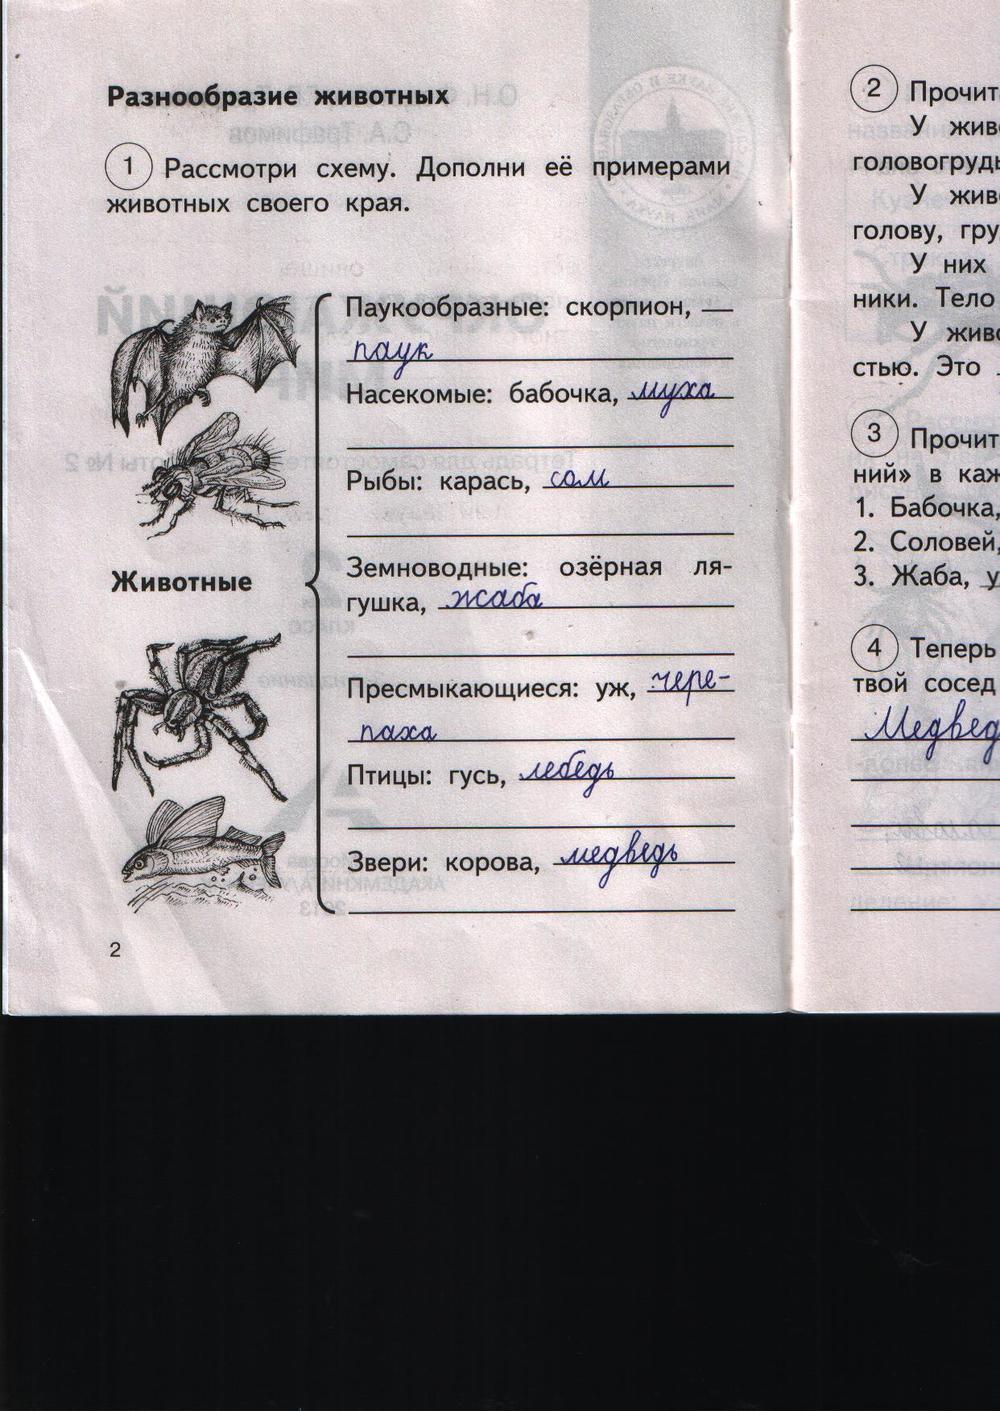 Разнообразие животных
1 Рассмотри схему. Дополни её примерами
животных своего края.
Паукообразные: скорпион,
паук
Насекомые: бабочка, муха
Рыбы: карась, сом
Земноводные: озёрная ля-
гушка, жаба
Животные
Пресмыкающиеся: уж, чере-
паха
Птицы: гусь, лебедь
Звери: корова, медведь
2
2 Прочит
У живо
головогрудь
У живо
голову, гру
У них
ники. Тело
У живо
стью. Это
3 Прочит
ний» в каж
1. Бабочка,
2. Соловей,
3. Жаба, у
4 Теперь
твой сосед
Медвед